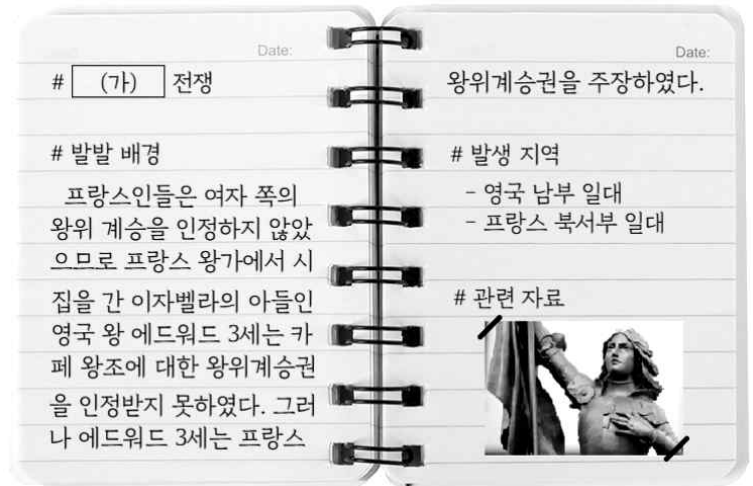 Date:
# (가) 전쟁
# 발발 배경
프랑스인들은 여자 쪽의
왕위 계승을 인정하지 않았
으므로 프랑스 왕가에서 시
집을 간 이자벨라의 아들인
영국 왕 에드워드 3세는 카
페 왕조에 대한 왕위계승권
을 인정받지 못하였다. 그러
나 에드워드 3세는 프랑스
Date:
왕위계승권을 주장하였다.
# 발생 지역
- 영국 남부 일대
- 프랑스 북서부 일대
# 관련 자료